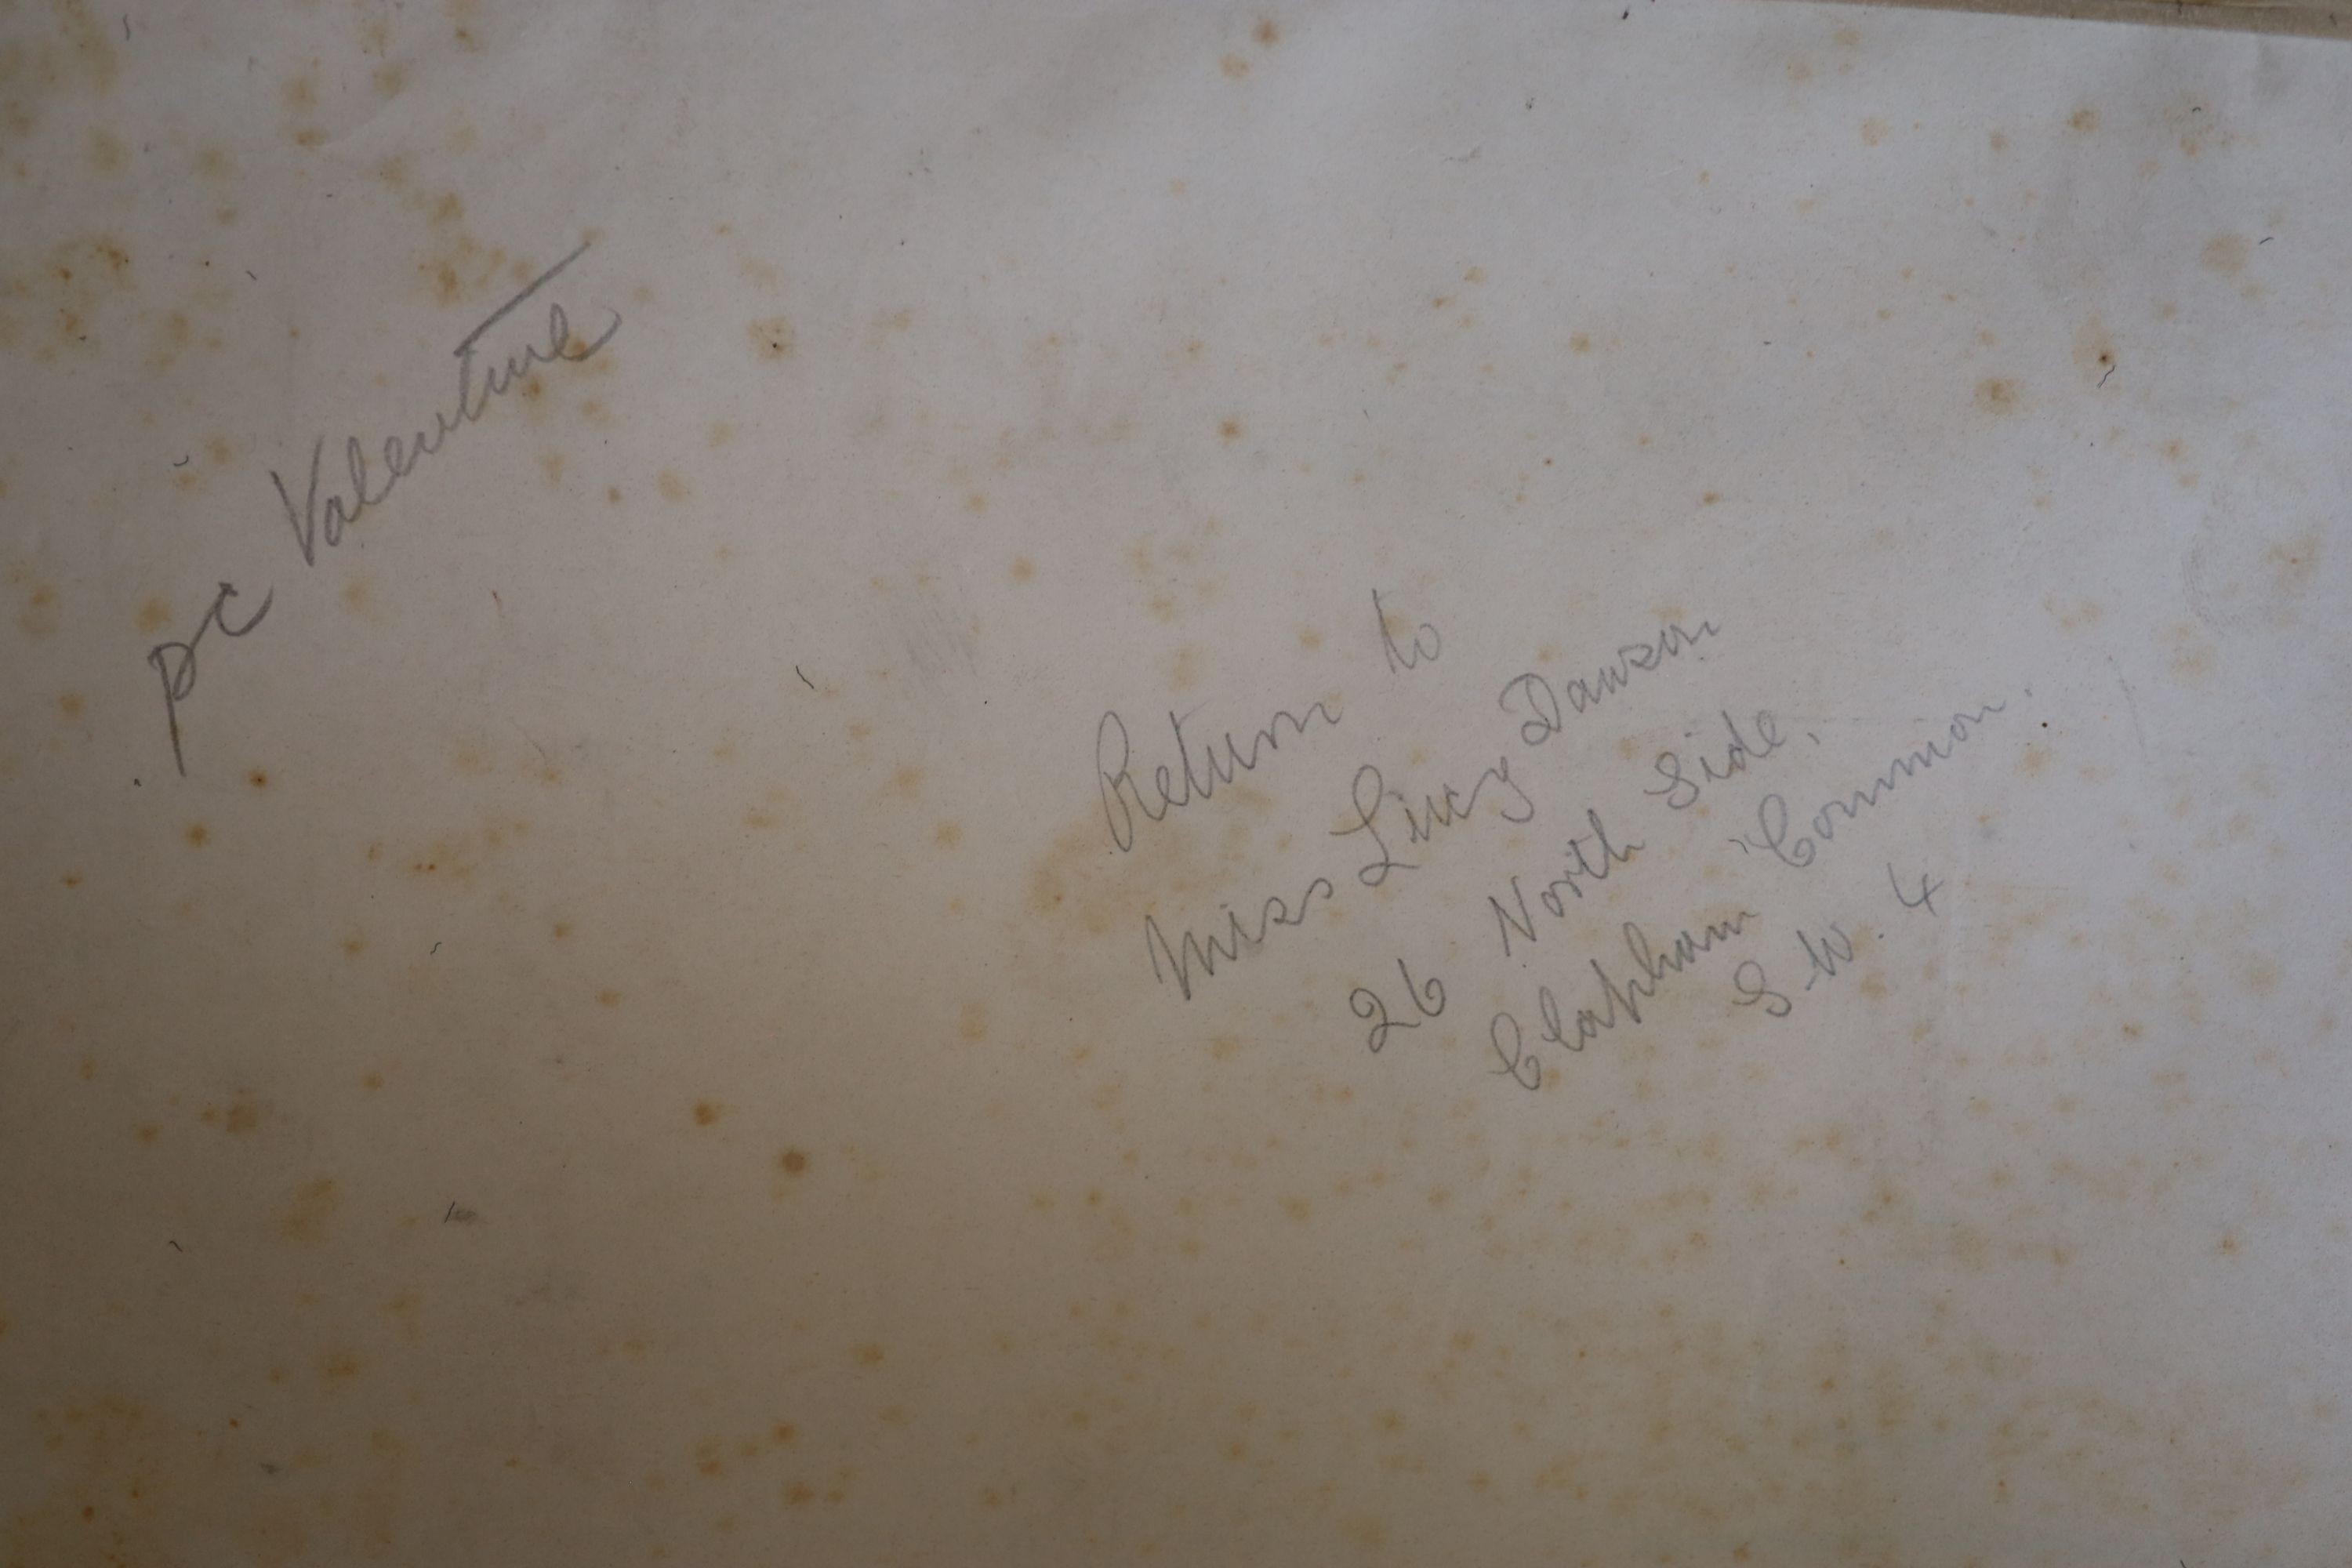 pc Valentine
Return to
Miss Lucy Dawson
26 North Side,
Clapham Common.
S.W. 4